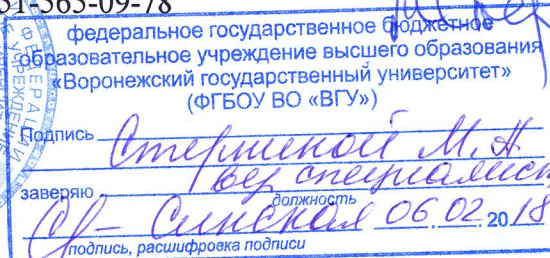 51-565-09-78
федеральное государственное бюджетное
образовательное учреждение высшего образования
«Воронежский государственный университет»
(ФГБОУ ВО «ВГУ»)
Подпись М.
заверяю вед специалист
должность
06 02 2018
подпись, расшифровка подписи